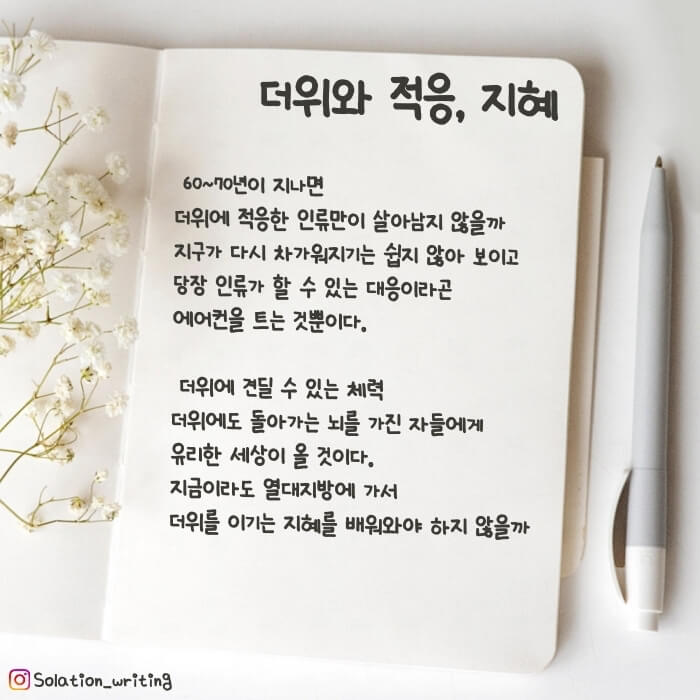 더위와 적응, 지혜
60~70년이 지나면
더위에 적응한 인류만이 살아남지 않을까
지구가 다시 차가워지기는 쉽지 않아 보이고
당장 인류가 할 수 있는 대응이라곤
에어컨을 트는 것뿐이다.
더위에 견딜 수 있는 체력
더위에도 돌아가는 뇌를 가진 자들에게
유리한 세상이 올 것이다.
지금이라도 열대지방에 가서
더위를 이기는 지혜를 배워와야 하지 않을까
Solation_writing